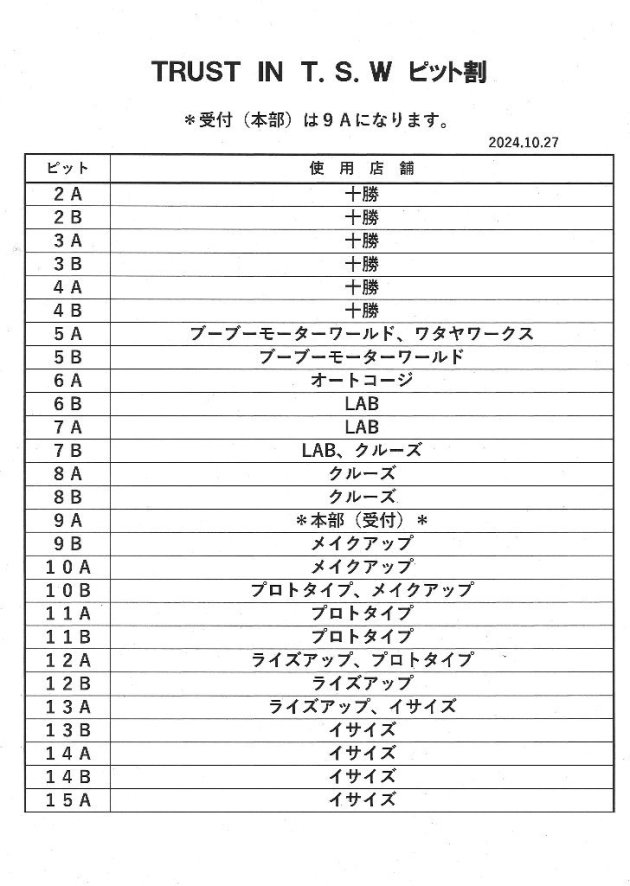 TRUST IN T. S. W ピット割
＊受付（本部）は９Ａになります。
2024.10.27
ピット 使 用 店 舗
２Ａ 十勝
２Ｂ 十勝
３Ａ 十勝
３Ｂ 十勝
４Ａ 十勝
４Ｂ 十勝
５Ａ ブーブーモーターワールド、ワタヤワークス
５Ｂ ブーブーモーターワールド
６Ａ オートコージ
６Ｂ LAB
７Ａ LAB
７Ｂ LAB、クルーズ
８Ａ クルーズ
８Ｂ クルーズ
９Ａ ＊本部（受付）＊
９Ｂ メイクアップ
１０Ａ メイクアップ
１０Ｂ プロトタイプ、メイクアップ
１１Ａ プロトタイプ
１１Ｂ プロトタイプ
１２Ａ ライズアップ、プロトタイプ
１２Ｂ ライズアップ
１３Ａ ライズアップ、イサイズ
１３Ｂ イサイズ
１４Ａ イサイズ
１４Ｂ イサイズ
１５Ａ イサイズ